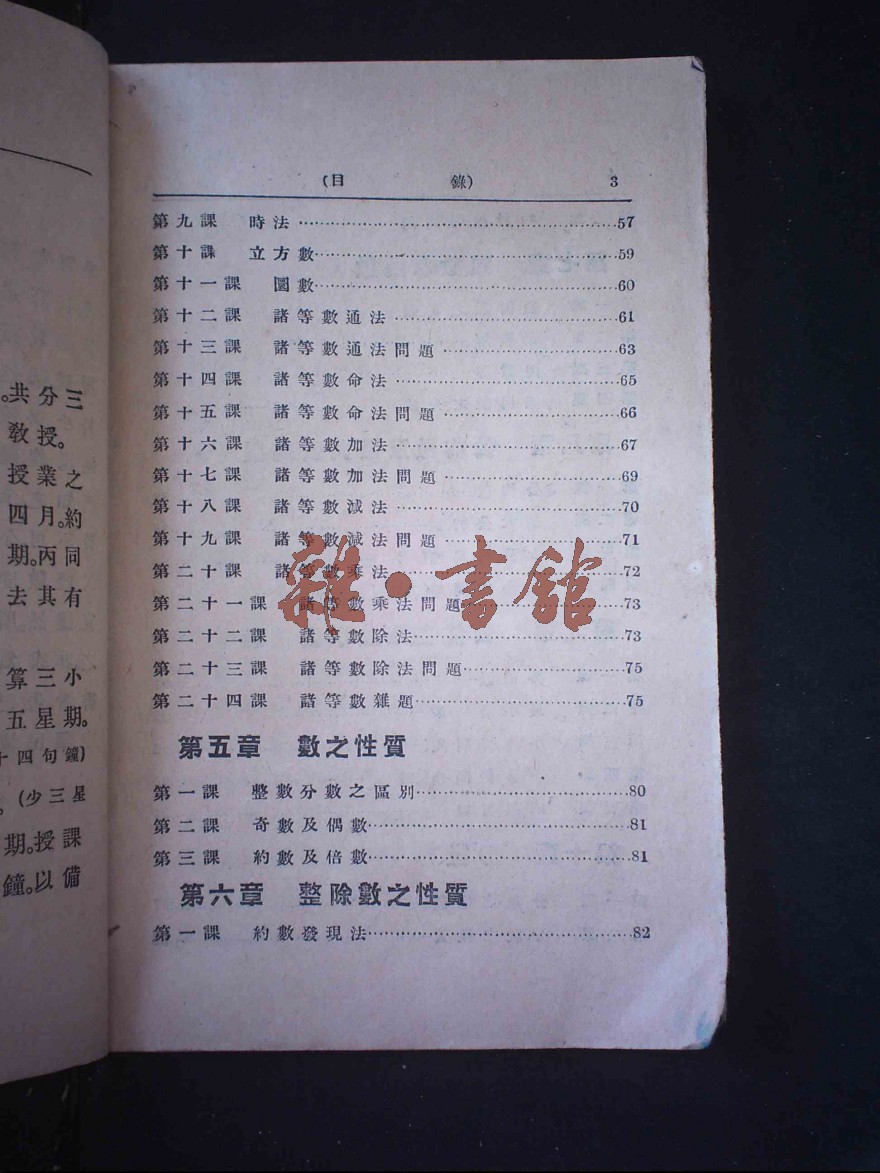 (目 錄) 3
第九課 時法 57
第十課 立方數 59
第十一課 圜數 60
第十二課 諸等數通法 61
第十三課 諸等數通法問題 63
第十四課 諸等數命法 65
第十五課 諸等數命法問題 66
第十六課 諸等數加法 67
第十七課 諸等數加法問題 69
第十八課 諸等數減法 70
第十九課 諸等數減法問題 71
第二十課 諸等數乘法 72
第二十一課 諸等數乘法問題 73
第二十二課 諸等數除法 73
第二十三課 諸等數除法問題 75
第二十四課 諸等數雜題 75
第五章 數之性質
第一課 整數分數之區別 80
第二課 奇數及偶數 81
第三課 約數及倍數 81
第六章 整除數之性質
第一課 約數發現法 82
。共分三
教授。
授業之
四月。約
期。丙同
去其有
算三小
五星期。
十四句鐘)
。(少三星
期。授課
鐘。以備
雜·書館